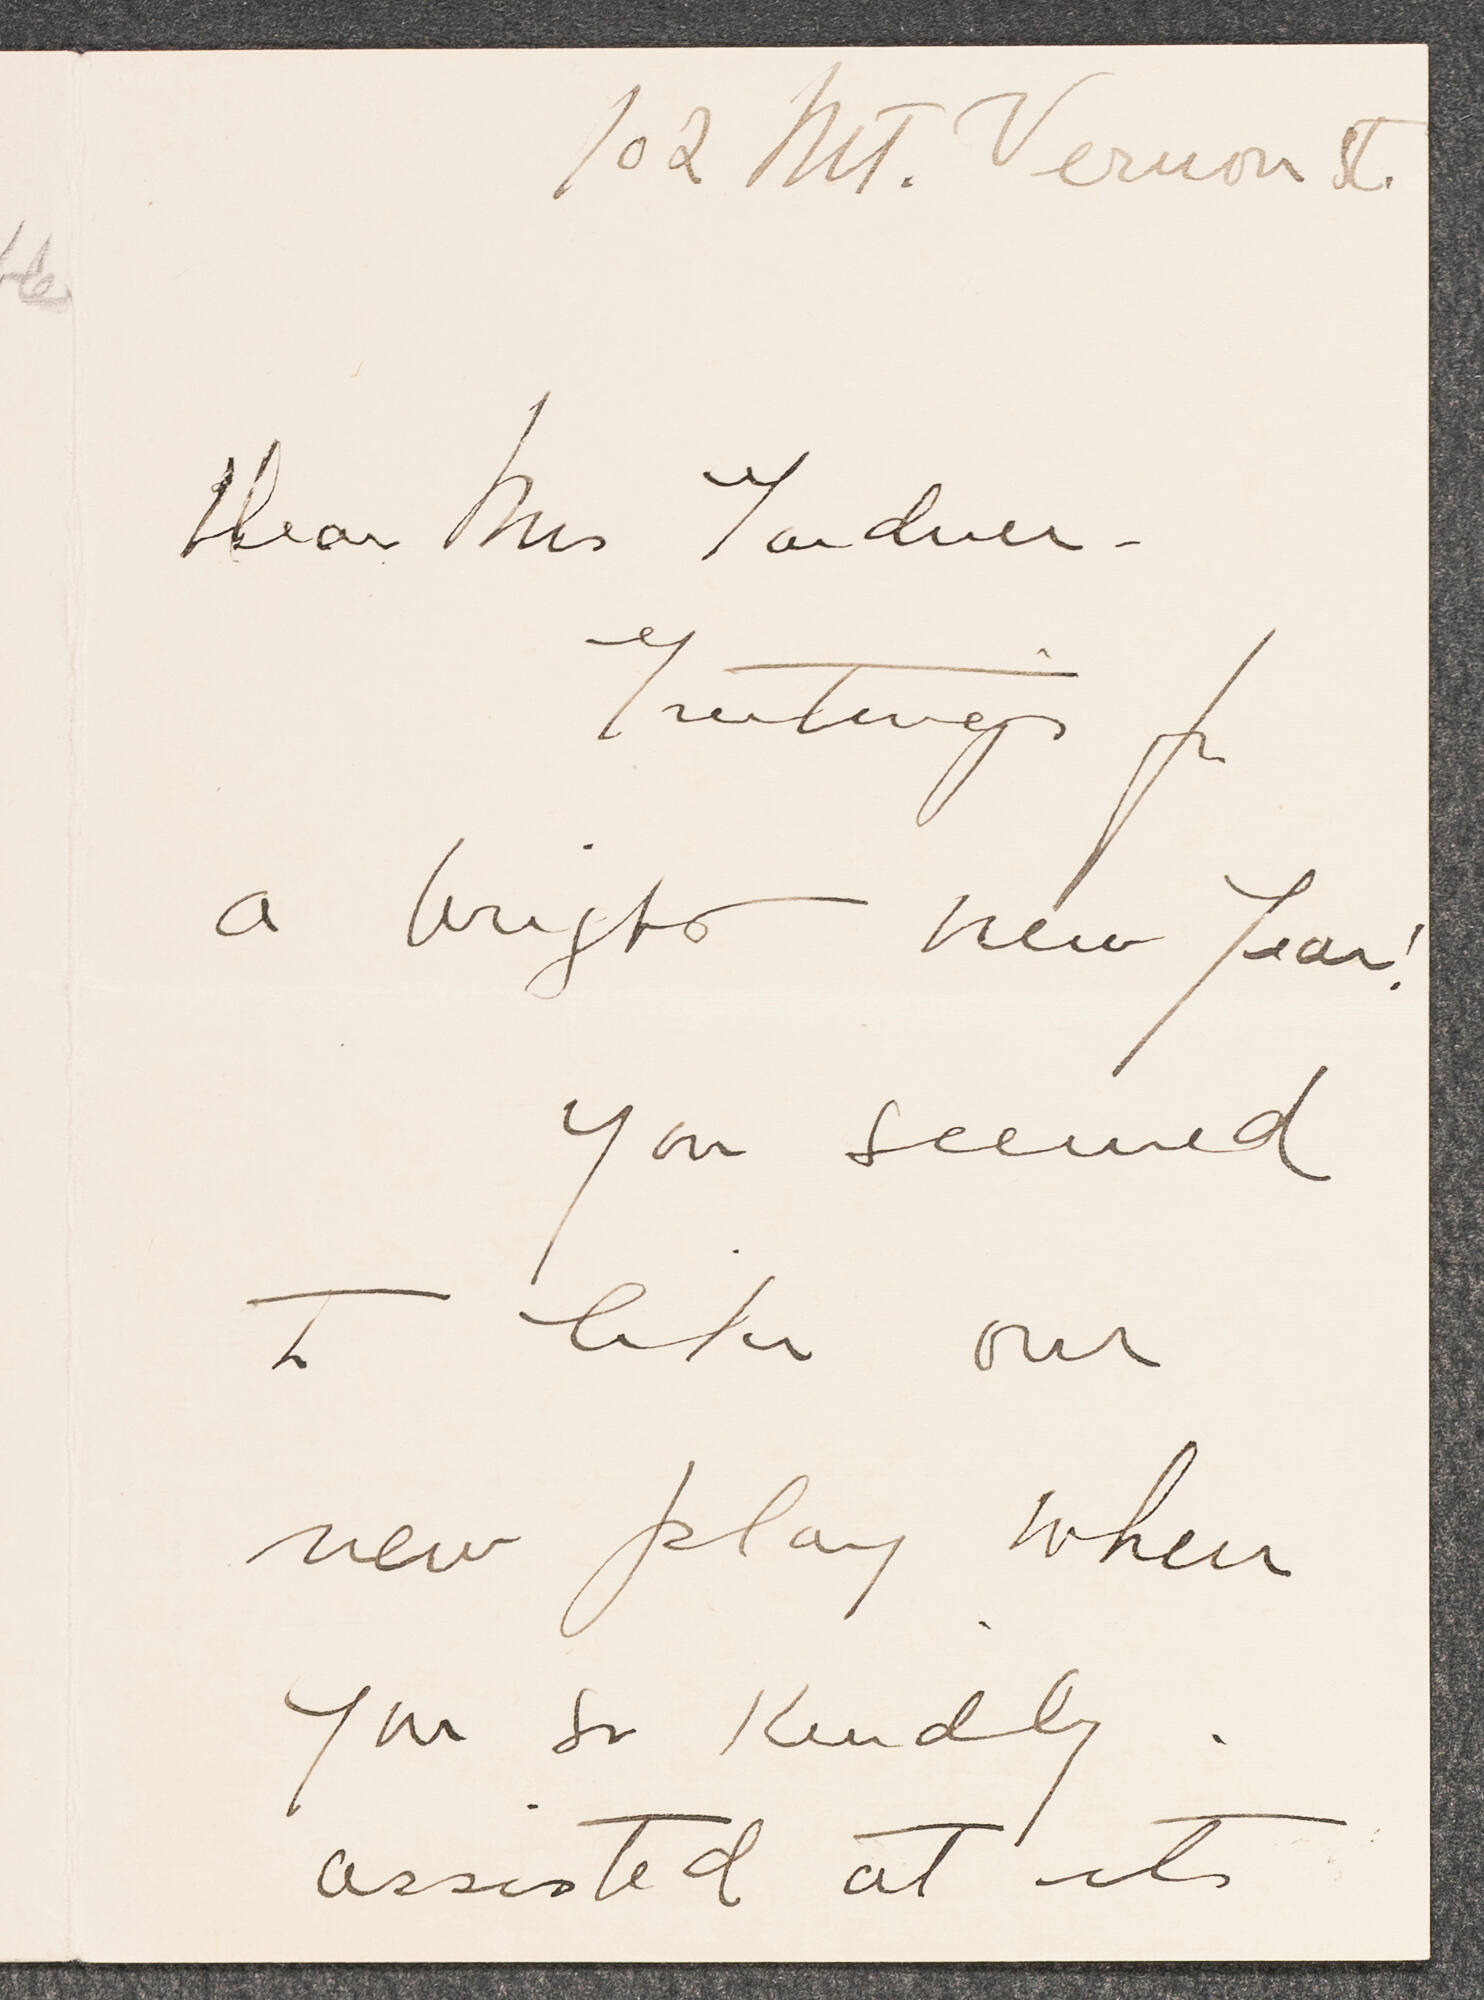 102 Mt. Vernon St.
Dear Mrs Gardner -
Greetings for
a bright new Year!
You seemed
to like our
new play when
you so kindly
assisted at its